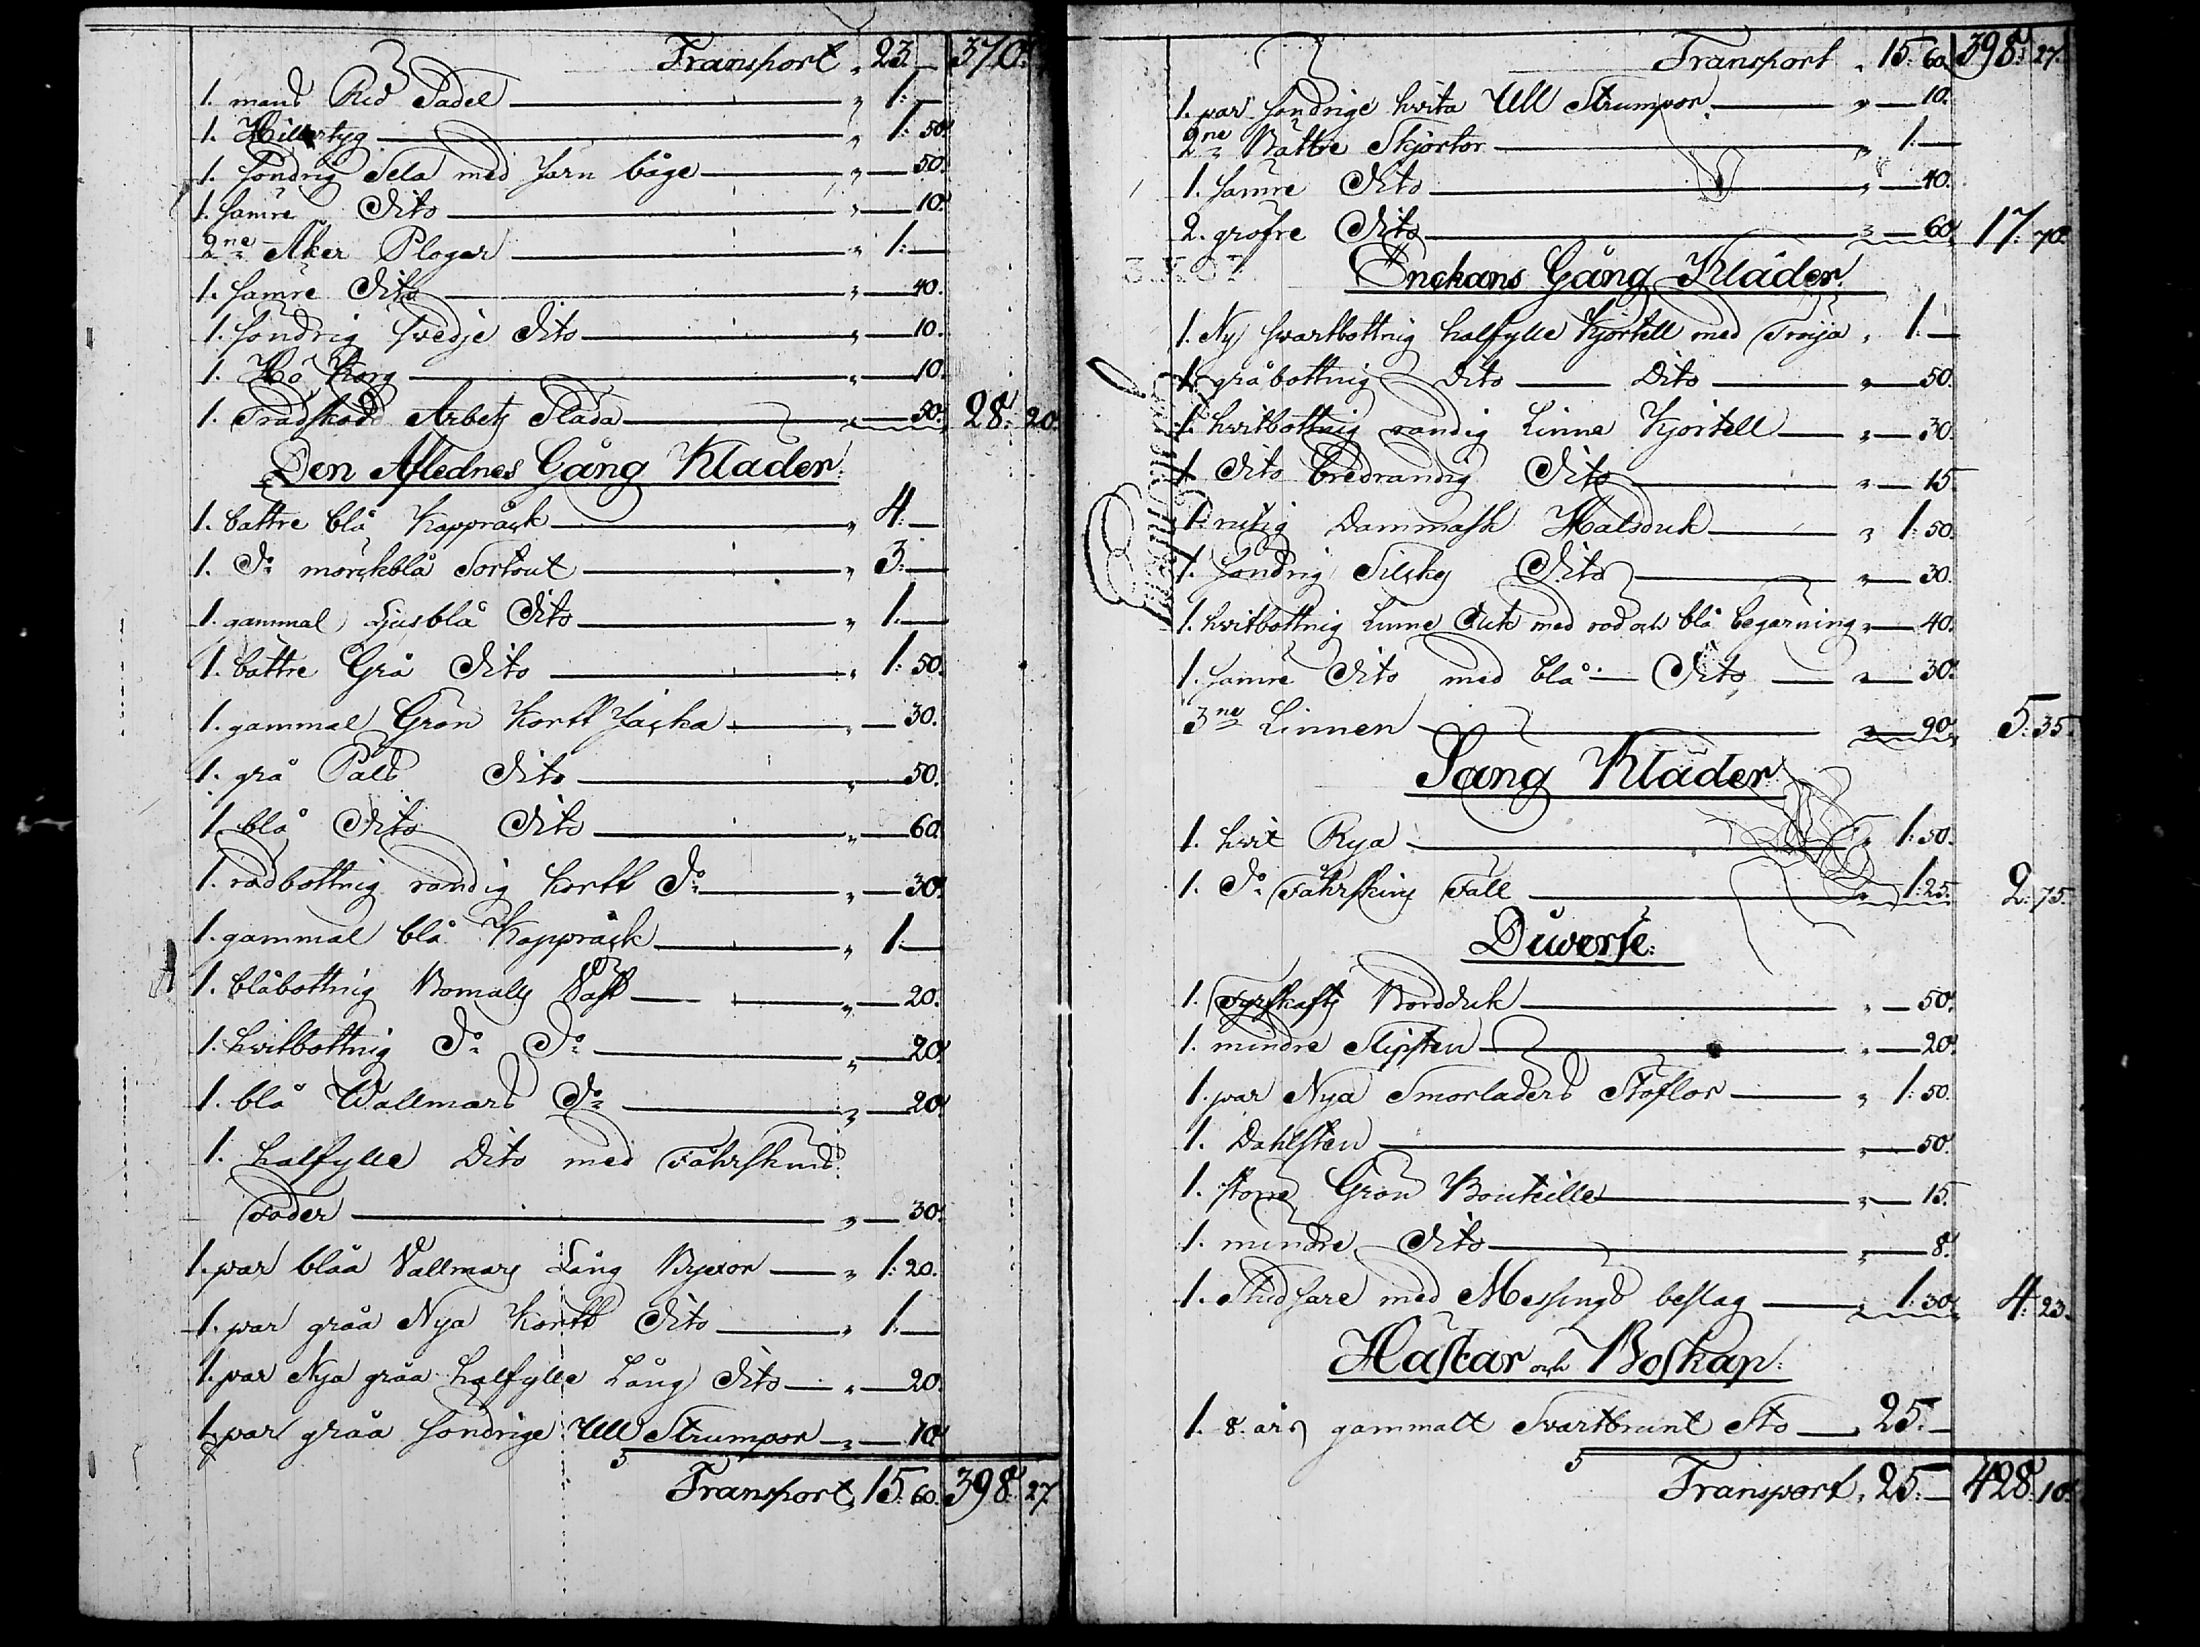 Transport „ 23 — 370:
1. mans Rid Sadel — „ 1: —
1. Hillertyg — „ 1: 50.
1. Söndrig Sela med Jarn båge — „ — 50.
1. Samre Dito — „ — 10.
2ne Åker Plogar — „ 1: —
1. Samre Dito — „ — 40.
1. Söndrig Svedje Dito — „ — 10.
1. Hö Korg — „ — 10.
1. Trädskodd Arbets Släda — „ — 50. 28: 20.
Den Aflednes Gång Kläder:
1. battre blå Kappråck — „ 4: —
1. Do mörckblå Sortout — „ 3: —
1. gammal Ljusblå Dito — „ 1: —
1. battre Grå Dito — „ 1: 50.
1. gammal Grön Kortt Jacka — „ — 30.
1. grå Päls Dito — „ — 50.
1. blå Dito Dito — „ — 60.
1. rödbottnig randig kortt Do — „ — 30.
1. gammal blå Kappråck — „ 1: —
1. blåbottnig Bomalls Väst — „ — 20.
1. hvitbottnig Do Do — „ — 20.
1. blå Wallmars Do — „ — 20.
1. halfylle Dito med Fåhrskins
Foder — „ — 30.
1. par blåa Vallmars Lång Byxor — „ 1: 20.
1. par gråa Nya Kortt Dito — „ 1: —
1. par Nya gråa halfylle Lång Dito — „ — 20.
1. par gråa Söndrige Ull Strumpor — „ — 10.
Transport „ 15: 60. 398: 27.
Transport „ 15: 60. 398: 27.
1. par Söndrige hvita Ull Strumpor — „ — 10.
2ne Bättre Skjortor — „ 1: —
1. Samre Dito — „ — 40.
2. gröfre Dito — „ — 60. 17: 70.
Enckans Gång Kläder.
1. Ny svartbottnig halfylle Kjortell med Tröija „ 1: —
1. gråbottnig Dito — Dito — „ — 50.
1. hvitbottnig randig Linne Kjortell — „ — 30.
1. Dito bredrandig Dito — „ — 15.
1. rutig Dammask Halsduk — „ 1: 50.
1. Söndrig Silckes Dito — „ — 30.
1. hvitbottnig Linne Duk med röd och blå begarning „ — 40.
1. Samre Dito med blå — Dito — „ — 30.
3ne Linnen — „ — 90. 5: 35.
Säng Kläder
1. hvit Rya — „ 1: 50.
1. Do Fåhrskins Fäll — „ 1: 25. 2: 75.
Diwerse:
1. Fyrskafts Bordduk — „ — 50.
1. mindre Slipsten — „ — 20.
1. par Nya Smorläders Stöflor — „ 1: 50.
1. Dahlsten — „ — 50.
1. störe Grön Bouteille — „ — 15.
1. mindre Dito — „ — 8.
1. Studsare med Messings beslag — „ 1: 30. 4: 23.
Hästar och Boskap:
1. 8. års gammalt Svartbrunt Sto — „ 25: —
Transport „ 25: — 428: 10.